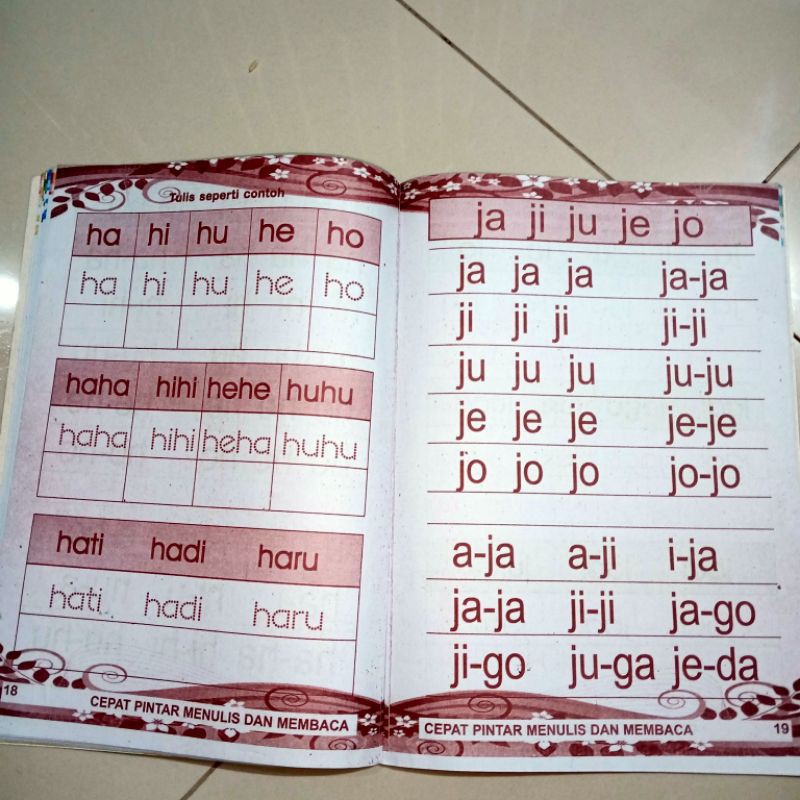 Tulis seperti contoh
ha hi hu he ho
ha hi hu he ho
haha hihi hehe huhu
haha hihi heha huhu
hati hadi haru
hati hadi haru
18
CEPAT PINTAR MENULIS DAN MEMBACA
ja ji ju je jo
ja ja ja ja-ja
ji ji ji ji-ji
ju ju ju ju-ju
je je je je-je
jo jo jo jo-jo
a-ja a-ji i-ja
ja-ja ji-ji ja-go
ji-go ju-ga je-da
CEPAT PINTAR MENULIS DAN MEMBACA
19